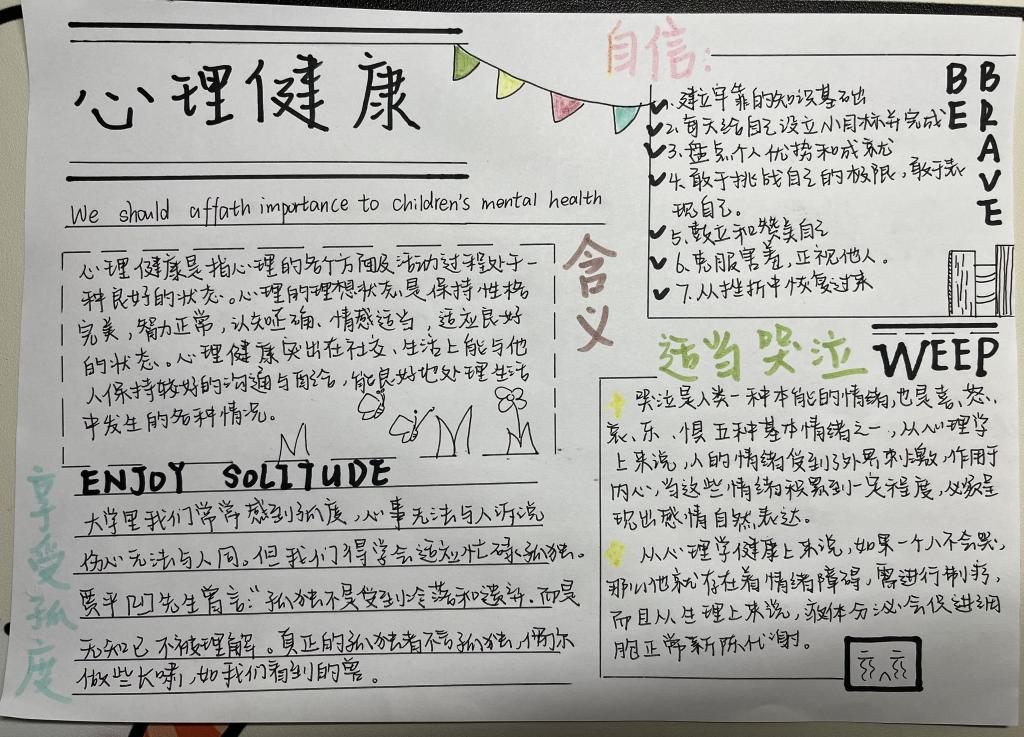 心理健康
We should affath importance to children's mental health
含义
心理健康是指心理的各个方面及活动过程处于一
种良好的状态。心理的理想状态是保持性格
完美，智力正常，认知正确、情感适当，适应良好
的状态。心理健康突出在社交、生活上能与他
人保持较好的沟通与配合，能良好地处理生活
中发生的各种情况。
享受孤度
ENJOY SOLITUDE
大学里我们常常感到孤度，心事无法与人诉说
伤心无法与人同。但我们得学会适应忙碌孤独。
贾平凹先生曾言："孤独不是受到冷落和遗弃.而是
无知己 不被理解。真正的孤独者不言孤独，偶尔
做些长啸，如我们看到的兽。
自信：
BE BRAVE
1.建立牢靠的知识基础
2.每天给自己设立小目标并完成
3.盘点个人优势和成就
4.敢于挑战自己的极限，敢于表
现自己。
5.鼓立和赞美自己
6.克服害羞，正视他人。
7.从挫折中恢复过来
适当哭泣 WEEP
哭泣是人类一种本能的情绪，也是喜、怒、
哀、乐、惧 五种基本情绪之一，从心理学
上来说，人的情绪受到了外界刺激，作用于
内心，当这些情绪积累到一定程度，必定呈
现出感情自然表达。
从心理学健康上来说，如果一个人不会哭，
那么他就存在着情绪障碍，需进行制疗，
而且从生理上来说，液体分泌会促进细
胞正常新陈代谢。